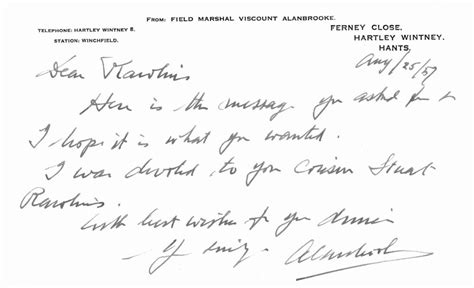 FROM: FIELD MARSHAL VISCOUNT ALANBROOKE.
TELEPHONE: HARTLEY WINTNEY 8.
STATION: WINCHFIELD.
FERNEY CLOSE,
HARTLEY WINTNEY,
HANTS.
Aug/25/57
Dear Rawlins
Here is the message you asked for &
I hope it is what you wanted.
I was devoted to your cousin Stuart
Rawlins.
With best wishes for your dinner
Yrs
Alanbrooke